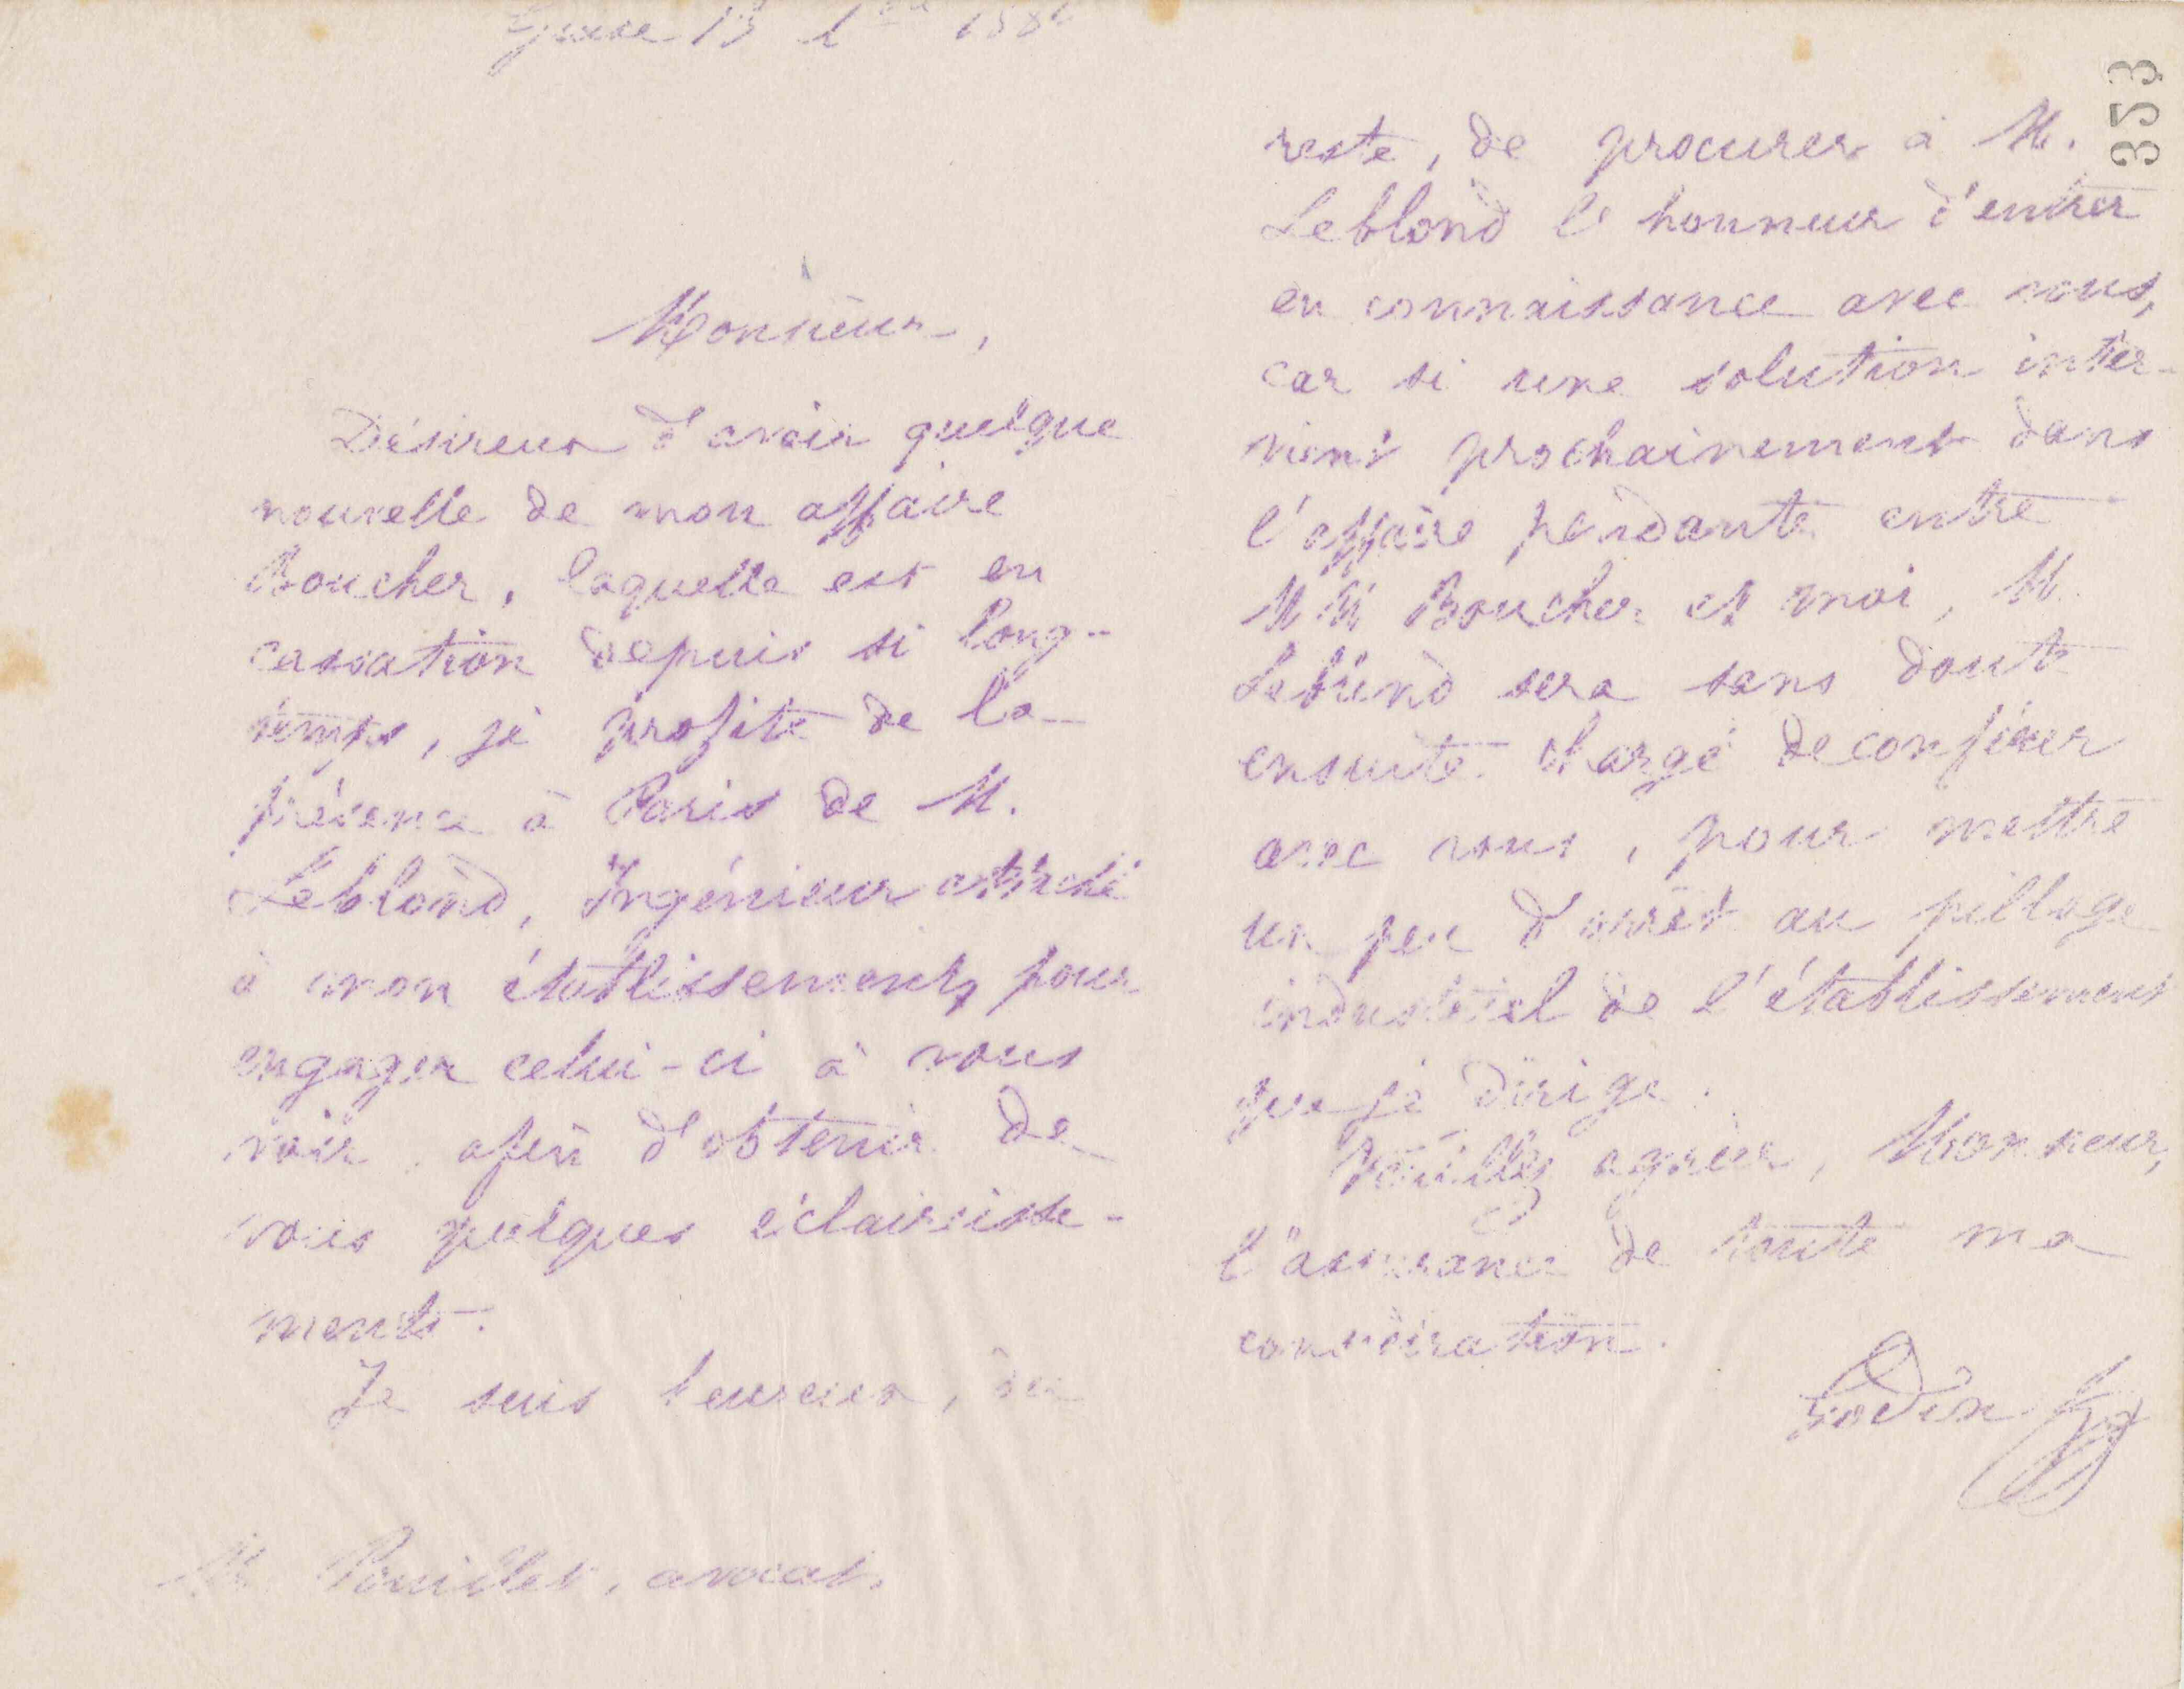 Guise 13
Monsieur,
Désireux d'avoir quelque
nouvelle de mon affaire
Boucher, laquelle est en
cassation depuis si long-
temps, je profite de la
présence à Paris de M.
Leblond, Ingénieur attaché
à mon établissement, pour
engager celui-ci à vous
voir, afin d'obtenir de
vous quelques éclaircisse-
ments.
Je suis heureux, du
M. Pouillet, avocat.
353
reste, de procurer à M.
Leblond l'honneur d'entrer
en connaissance avec vous,
car si une solution inter-
vient prochainement dans
l'affaire pendante entre
MM Boucher et moi, M.
Leblond sera sans doute
ensuite chargé de conférer
avec vous, pour mettre
un peu d'arrêt au pillage
industriel de l'établissement
que je dirige.
Veuillez agréer, Monsieur,
l'assurance de toute ma
considération.
Godin